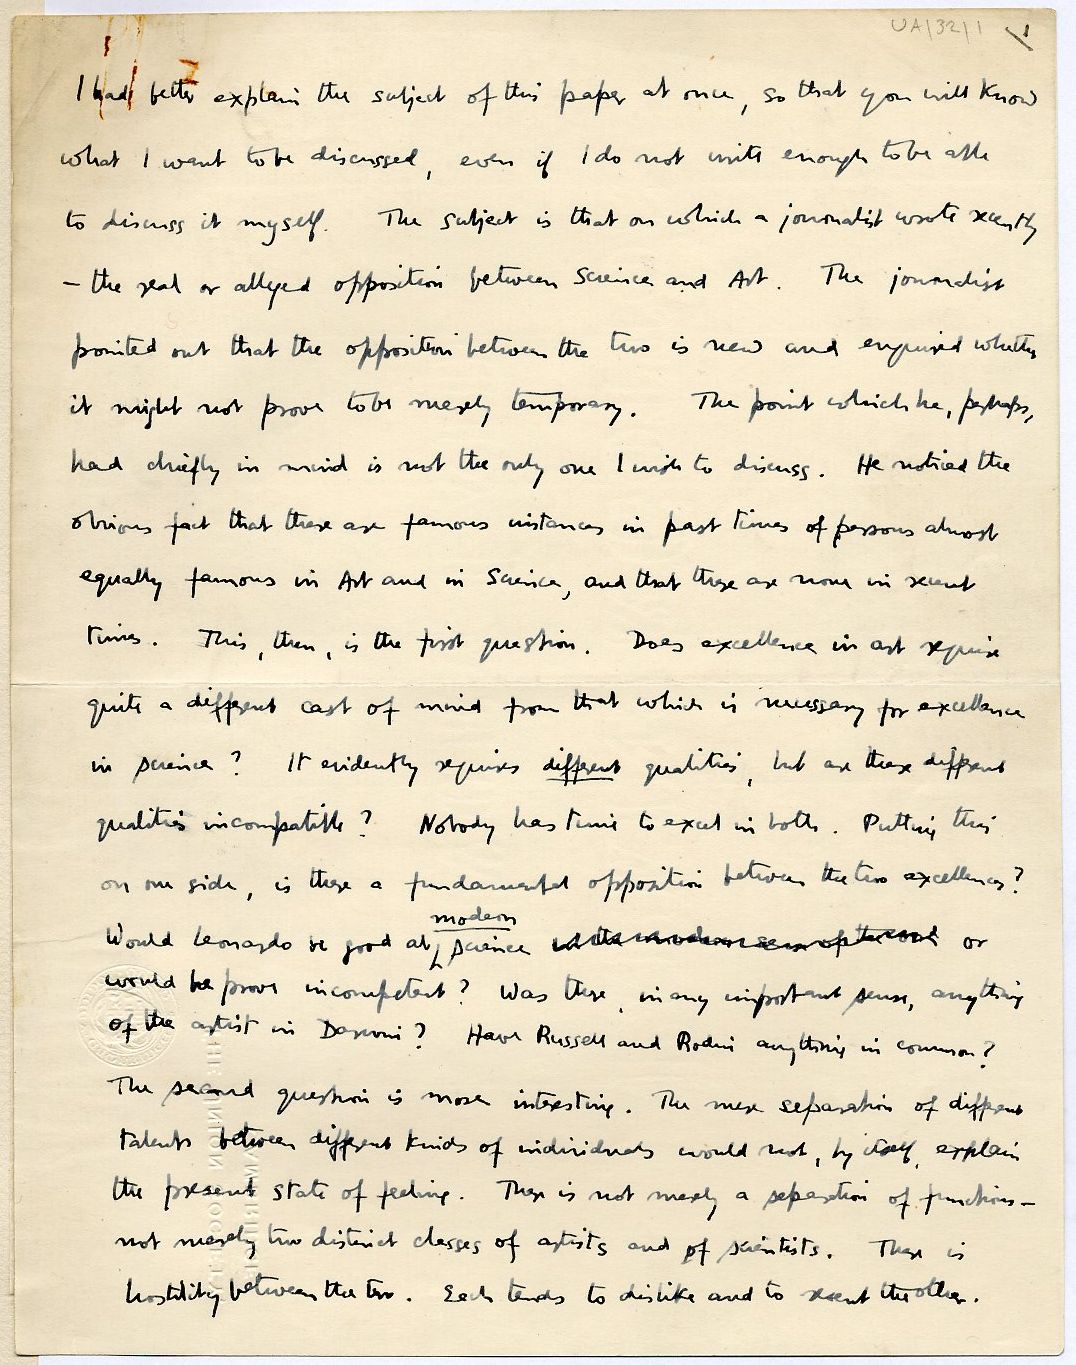 UA/32/1 1
I had better explain the subject of this paper at once, so that you will know
what I want to be discussed, even if I do not write enough to be able
to discuss it myself. The subject is that on which a journalist wrote recently
– the real or alleged opposition between Science and Art. The journalist
pointed out that the opposition between the two is new and enquired whether
it might not prove to be merely temporary. The point which he, perhaps,
had chiefly in mind is not the only one I wish to discuss. He noticed the
obvious fact that there are famous instances in past times of persons almost
equally famous in Art and in Science, and that there are none in recent
times. This, then, is the first question. Does excellence in art require
quite a different cast of mind from that which is necessary for excellence
in science? It evidently requires different qualities, but are these different
qualities incompatible? Nobody has time to excel in both. Putting this
on one side, is there a fundamental opposition between the two excellences?
modern
Would Leonardo be good at science in the modern sense of the word or
would he prove incompetent? Was there, in any important sense, anything
of the artist in Darwin? Have Russell and Rodin anything in common?
The second question is more interesting. The mere separation of different
talents between different kinds of individuals would not, by itself, explain
the present state of feeling. There is not merely a separation of functions –
not merely two distinct classes of artists and of scientists. There is
hostility between the two. Each tends to dislike and to resent the other.